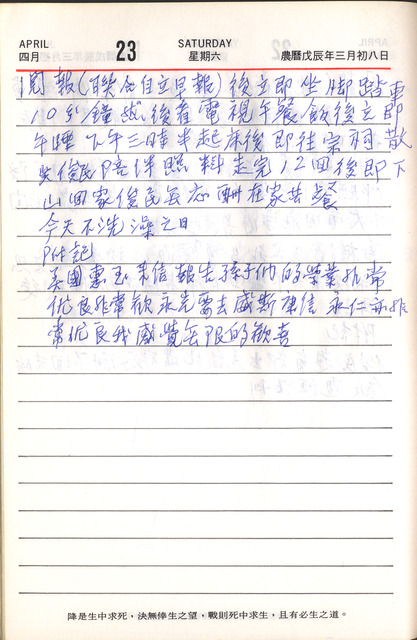 APRIL
四月
23
SATURDAY
星期六
農曆戊辰年三月初八日
閱報(聯合自立早報)後立即坐脚踏車
10分鐘 後看電視午餐飯後立即
午睡下午三時半起床後即往崇祠散
俊民陪伴照料走完12回後即下
山回家俊民無應酬在家共餐
今天不洗澡之日
附記
美國惠玉來信報告孫子們的學業非常
優良非常歡永光要去威斯康信永仁亦非
常優良我感覺無限的歡喜
降是生中求死,決無倖生之望,戰則死中求生,且有必生之道。